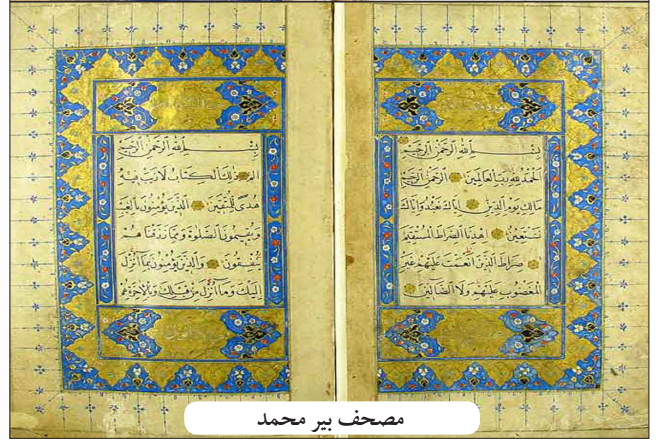 بِسْمِ اللهِ الرَّحْمٰنِ الرَّحِيمِ
الْحَمْدُ لِلهِ رَبِّ الْعَالَمِينَ الرَّحْمٰنِ الرَّحِيمِ
مَالِكِ يَوْمِ الدِّينِ اِيَّاكَ نَعْبُدُ وَاِيَّاكَ
نَسْتَعِينُ اِهْدِنَا الصِّرَاطَ الْمُسْتَقِيمَ
صِرَاطَ الَّذِينَ اَنْعَمْتَ عَلَيْهِمْ غَيْرِ
الْمَغْضُوبِ عَلَيْهِمْ وَلَا الضَّالِّينَ
بِسْمِ اللهِ الرَّحْمٰنِ الرَّحِيمِ
الم ذٰلِكَ الْكِتَابُ لَا رَيْبَ فِيهِ
هُدًى لِلْمُتَّقِينَ اَلَّذِينَ يُؤْمِنُونَ بِالْغَيْبِ
وَيُقِيمُونَ الصَّلٰوةَ وَمِمَّا رَزَقْنَاهُمْ
يُنْفِقُونَ وَالَّذِينَ يُؤْمِنُونَ بِمَا اُنْزِلَ
اِلَيْكَ وَمَا اُنْزِلَ مِنْ قَبْلِكَ وَبِالْاٰخِرَةِ هُمْ
مصحف بير محمد